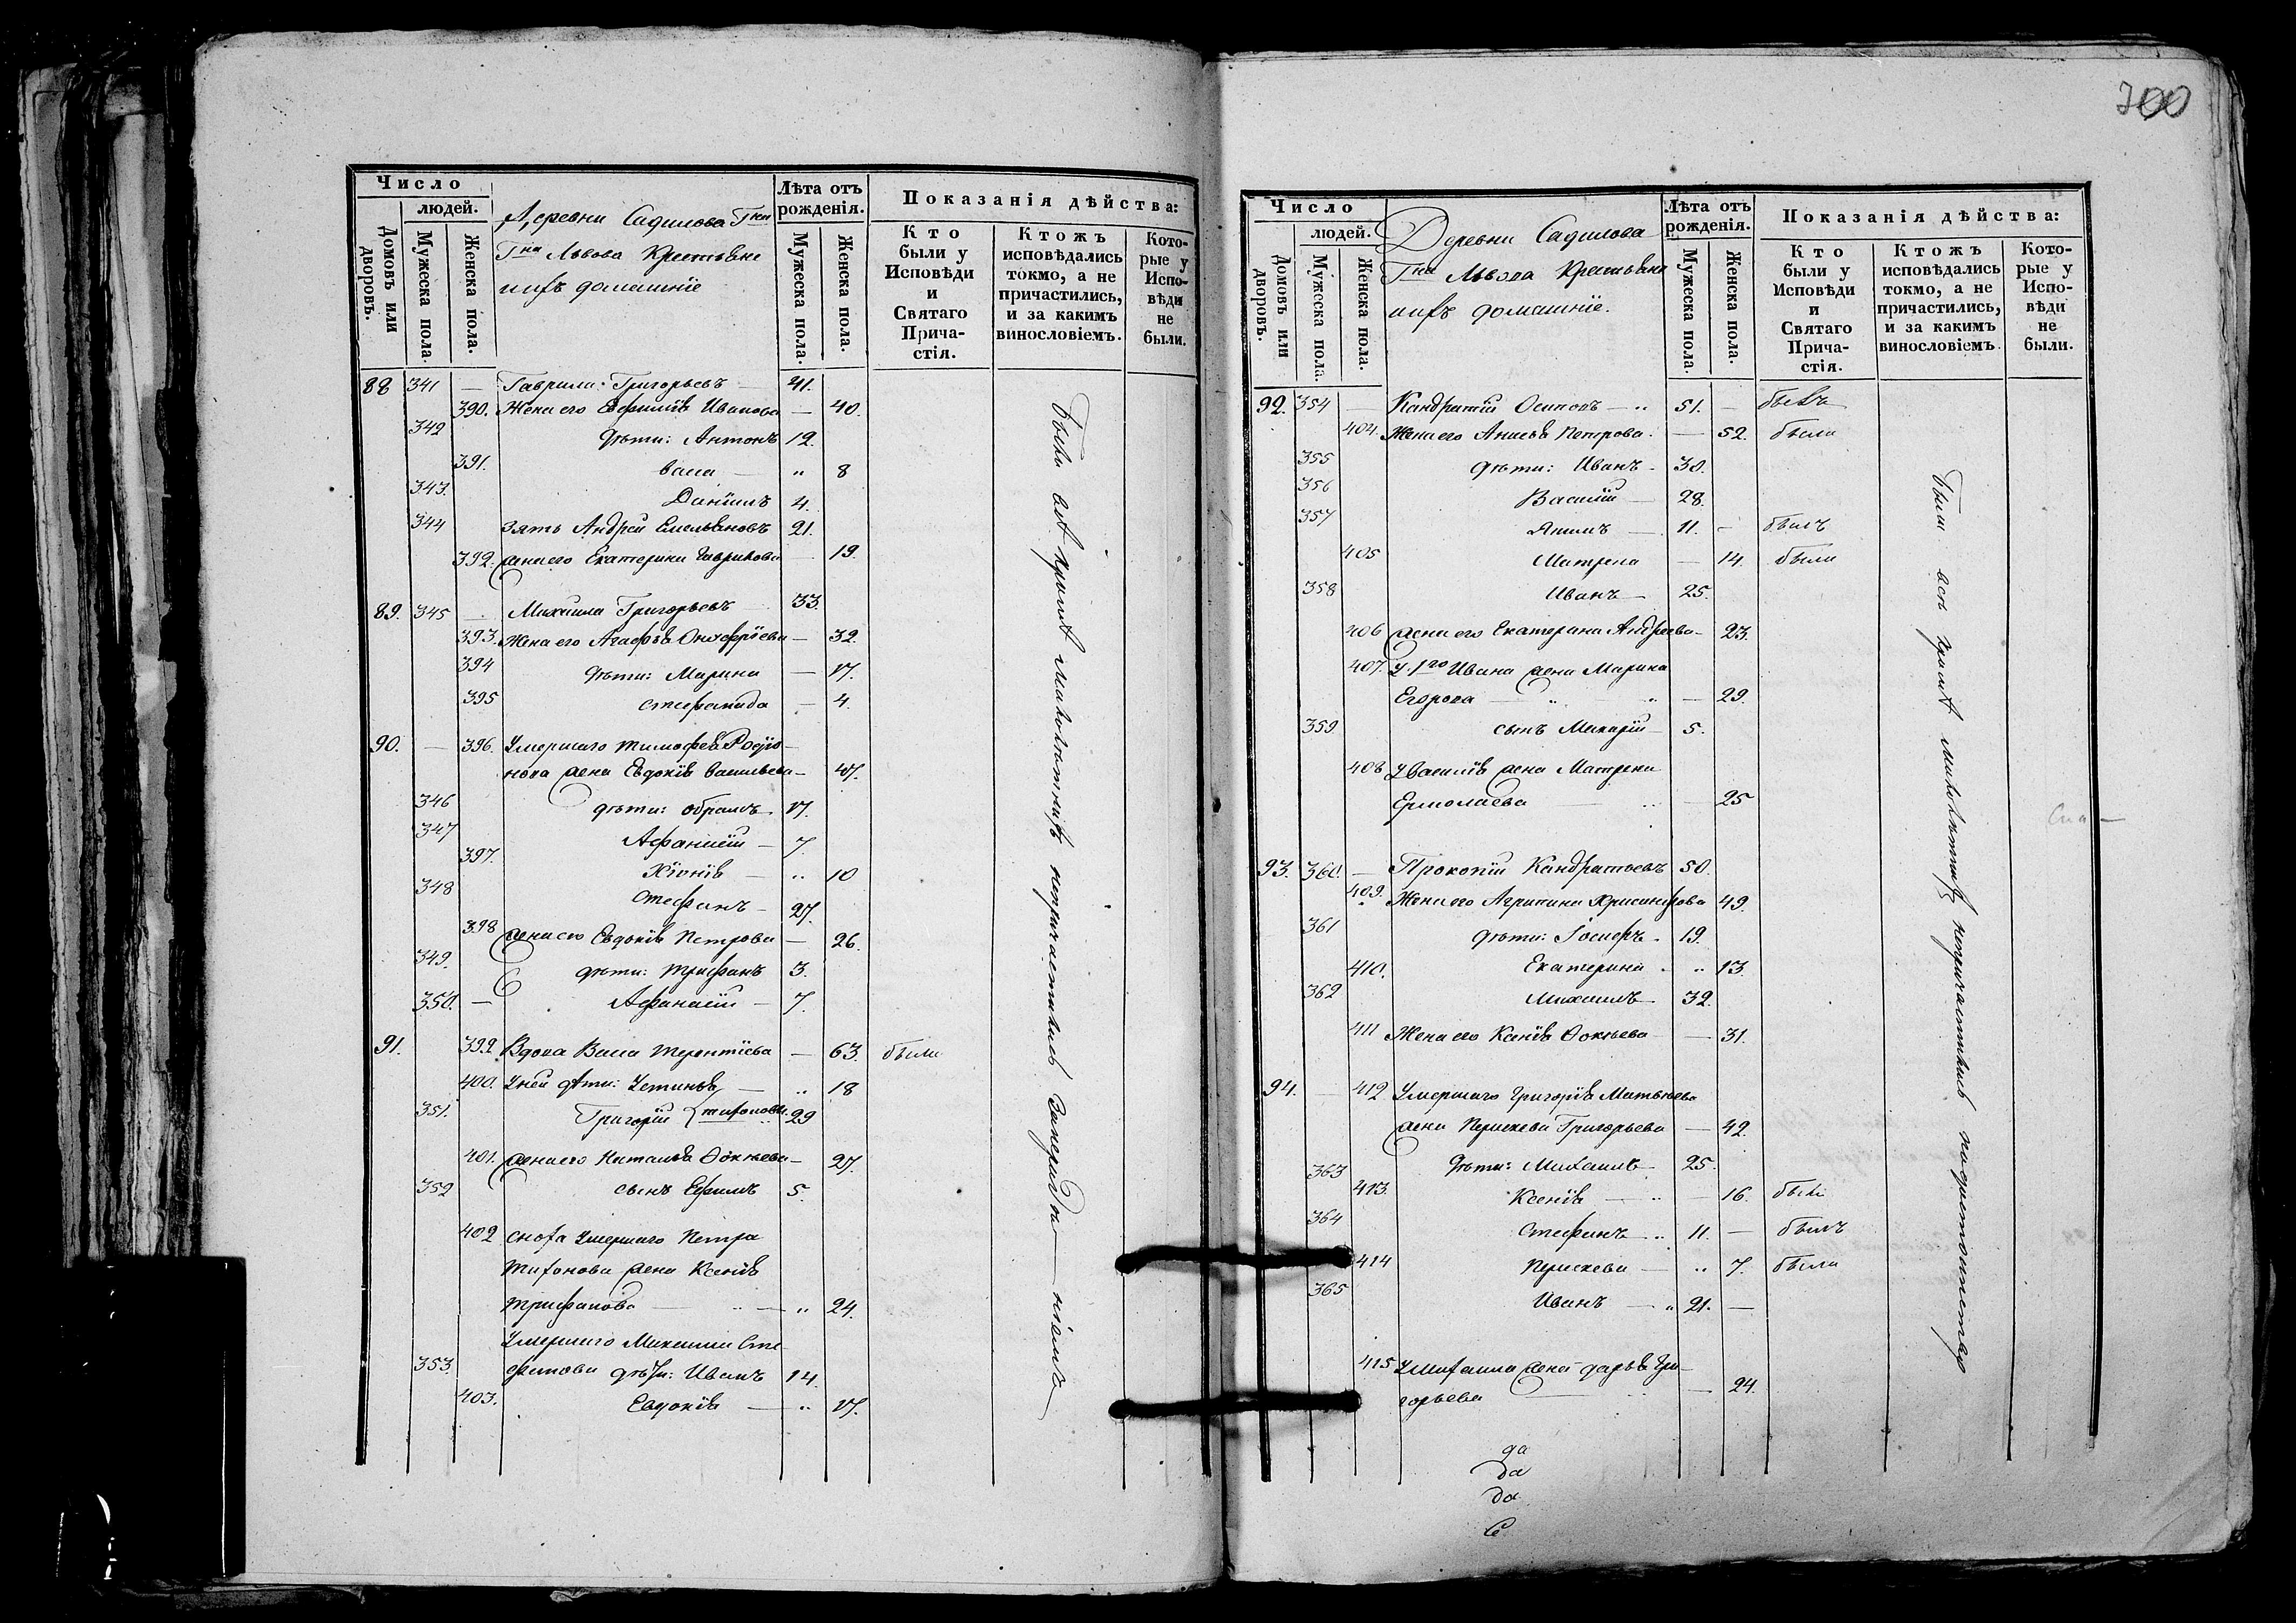 700
Число
людей.
Домовъ или дворовъ.
Мужеска пола.
Женска пола.
Деревни Садилова Гна
Гна Львова Крестьяне
ихъ домашніе
Лѣта отъ рожденія.
Мужеска пола.
Женска пола.
Показанія дѣйства:
Кто были у Исповѣди и Святаго Прича-стія.
Ктожъ исповѣдались токмо, а не причастились, и за какимъ винословіемъ.
Кото-рые у Испо-вѣди не были.
88 341 — Гаврила Григорьевъ — 41.
390. Жена его Евфимія Иванова — 40.
342 дѣти: Антонъ 12.
391. Васа — „ 8
343. Даніилъ 4.
344 Зять Андрей Емельяновъ 21.
392. жена его Екатерина Гаврилова — 19
89. 345 — Михаила Григорьевъ — 33.
393. Жена его Агафья Онуфріева — 32.
394 дѣти: Марина — 17.
395 Стефанида — 4.
90. — 396. Умершаго Тимофея Родіо-
нова жена Евдокія Васильева — 47.
346 дѣти: Обрамъ 17.
347 Афанасій — 7.
397. Хіонія — „ 10
348 Стефанъ — 27.
398 жена его Евдокія Петрова — 26.
349. дѣти: Трифанъ 3.
350. — Афанасій — 7.
91. 399. Вдова Васа Терентіева — 63. была
400. У ней дѣти: Устинья — „ 18
351. Григорій Тихоновы „ 29
401. жена его Наталья Ѳокѣева — 27.
352 сынъ Ефимъ 5.
402 сноха Умершаго Петра
Тихонова жена Ксенія
Трифанова — „ — „ 24.
Умершаго Михаила Сте-
353. фанова дѣти: Иванъ 14.
403. Евдокія — „ 17.
Были всѣ кромѣ малолѣтнихъ непричастились
Число
людей.
Домовъ или дворовъ.
Мужеска пола.
Женска пола.
Деревни Садилова
Гна Львова Крестьяне
ихъ домашніе.
Лѣта отъ рожденія.
Мужеска пола.
Женска пола.
Показанія дѣйства:
Кто были у Исповѣди и Святаго Прича-стія.
Ктожъ исповѣдались токмо, а не причастились, и за какимъ винословіемъ.
Кото-рые у Испо-вѣди не были.
92. 354 — Кандратій Осиповъ — „ 51. — былъ
404. Жена его Анисья Петрова. — 52. была
355 дѣти: Иванъ — 30.
356 Василій — 28.
357 Якимъ — 11. — былъ
405 Матрена — 14. была
358 Иванъ — 25.
406 жена его Екатерина Андреева — 23.
407. У 1го Ивана жена Марина
Егорова — „ „ — 29.
359 сынъ Макарій — 5.
408 У Василія жена Матрена
Ермолаева „ — 25
93. 360. — Прокопій Кандратьевъ 50.
409. Жена его Агрипина Хрисанфова 49.
361 дѣти: Іосифъ — 19.
410. Екатерина — „ 13.
362 Михаилъ — 32.
411 Жена его Ксенія Ѳокѣева — 31.
94. — 412 Умершаго Григорія Матвѣева
жена Параскева Григорьева — 42.
363 Дѣти: Михаилъ — 25.
413. Ксенія — „ — 16. была
364 Стефанъ — „ 11. — былъ
414 Параскева — „ 7. была
365 Иванъ — „ 21. —
415 У Михаила жена Дарья Гри-
горьева — „ — 24.
Были всѣ кромѣ малолѣтнихъ непричастились
да
да
да